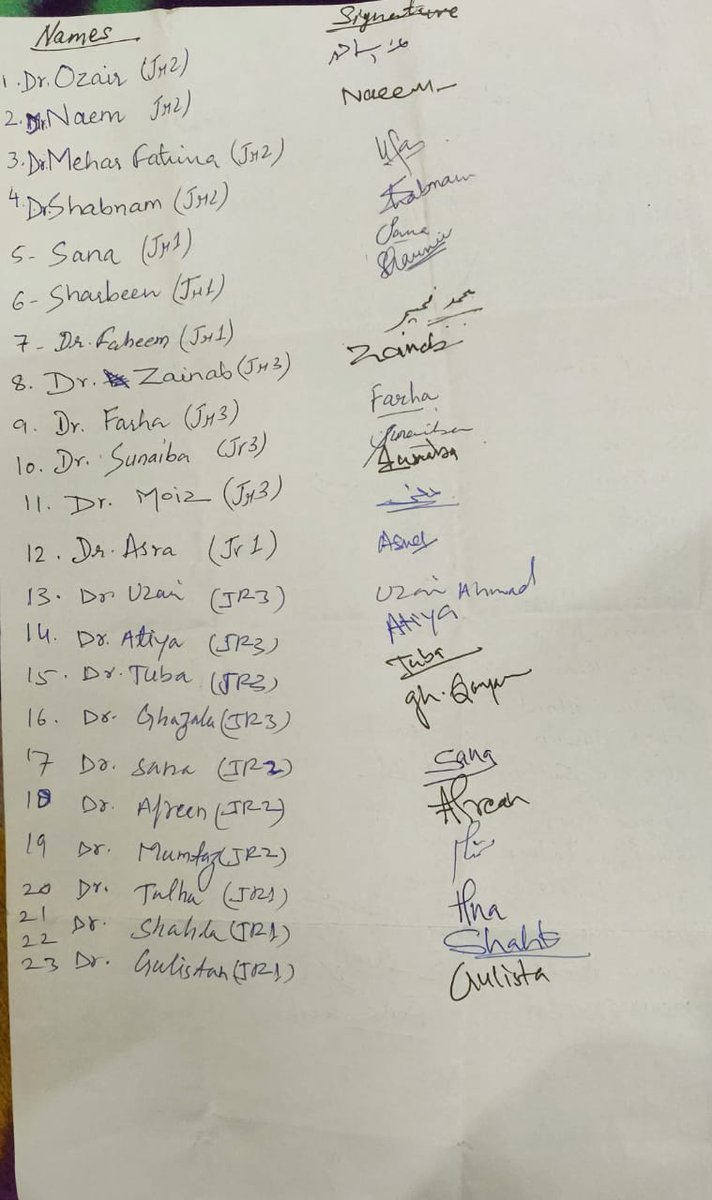 Names Signature
1. Dr. Ozair (Jr2)
2. Dr. Naem Jr2) Naeem
3. Dr. Mehar Fatima (Jr2)
4. Dr Shabnam (Jr2) Shabnam
5- Sana (Jr1) Sana
6- Sharbeen (Jr1)
7- Dr. Faheem (Jr1) محمد فہیم
8. Dr. Zainab (Jr3) Zainab
9. Dr. Farha (Jr3) Farha
10. Dr. Sunaiba (Jr3) Sunaiba
11. Dr. Moiz (Jr3)
12. Dr. Asra (Jr1)
13. Dr Uzair (JR3) Uzair Ahmad
14. Dr. Atiya (JR3) Atiya
15. Dr. Tuba (JR3) Tuba
16. Dr. Ghazala (JR3) gh. Qayum
17 Dr. Sana (JR2) Sana
18 Dr. Afreen (JR2) Afreen
19 Dr. Mumtaz (JR2)
20 Dr. Talha (JR1)
21 Dr. Shahda (JR1)
22
23 Dr. Gulistan (JR1) Gulista